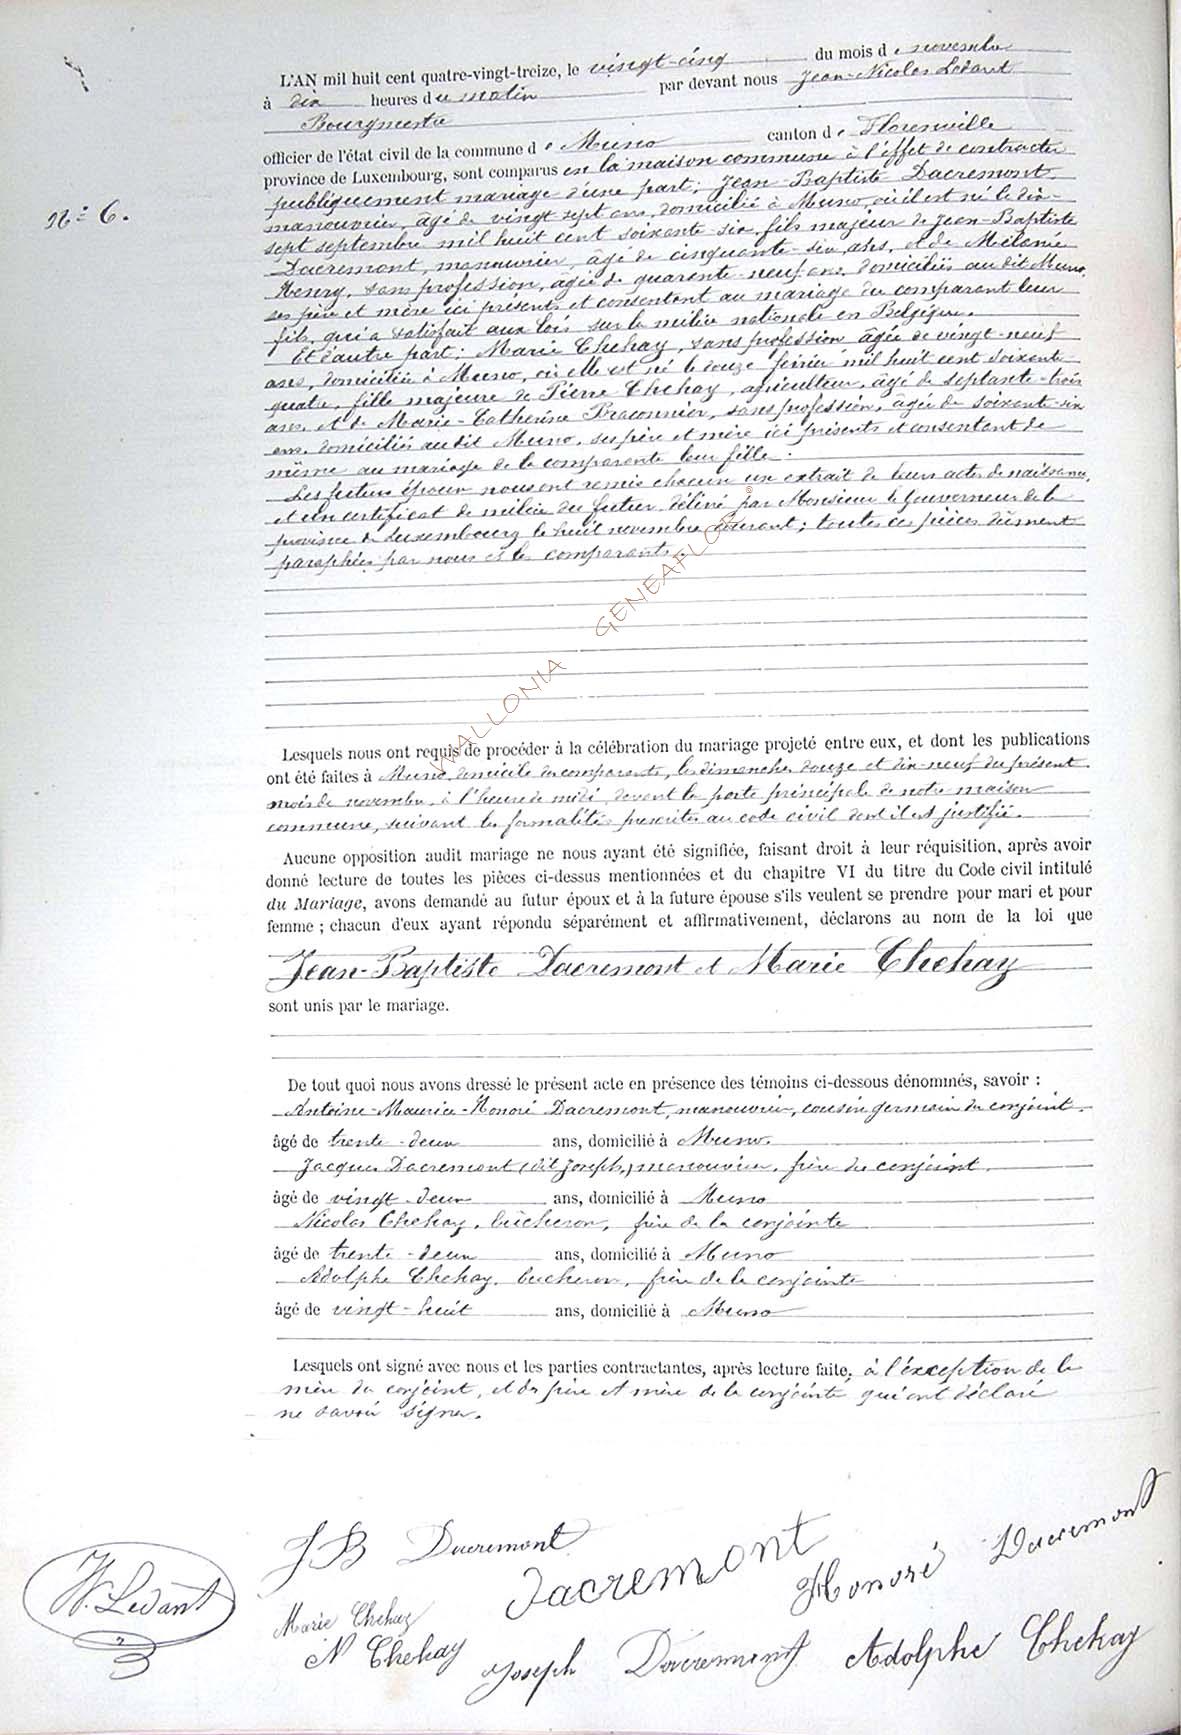 L'AN mil huit cent quatre-vingt-treize, le vingt-cinq du mois de novembre
à dix heures du matin par devant nous Jean-Nicolas Ledant
Bourgmestre
officier de l'état civil de la commune de Muno canton de Florenville
province de Luxembourg, sont comparus en la maison commune à l'effet de contracter
N° 6.
publiquement mariage d'une part; Jean-Baptiste Dacremont,
manouvrier, âgé de vingt sept ans, domicilié à Muno, où il est né le dix-
sept septembre mil huit cent soixante-six, fils majeur de Jean-Baptiste
Dacremont, manouvrier, âgé de cinquante-six ans, et de Mélanie
Henry, sans profession, âgée de quarante-neuf ans, domiciliés au dit Muno,
ses père et mère ici présents et consentant au mariage du comparant leur
fils, qui a satisfait aux lois sur la milice nationale en Belgique.
Et d'autre part; Marie Chehay, sans profession âgée de vingt-neuf
ans, domiciliée à Muno, où elle est né le douze février mil huit cent soixante
quatre, fille majeure de Pierre Chehay, agriculteur, âgé de septante-trois
ans, et de Marie-Catherine Braconnier, sans profession, âgée de soixante-six
ans, domiciliés au dit Muno, ses père et mère ici présents et consentant de
même au mariage de la comparante leur fille.
Les futurs époux nous ont remis chacun un extrait de leurs actes de naissance,
et un certificat de milice du futur, délivré par Monsieur le Gouverneur de la
province de Luxembourg le huit novembre courant; toutes ces pièces dûment
paraphées par nous et les comparants.
WALLONIA GENEAFLOR ©
Lesquels nous ont requis de procéder à la célébration du mariage projeté entre eux, et dont les publications
ont été faites à Muno, domicile des comparants, les dimanches douze et dix-neuf du présent
mois de novembre, à l'heure de midi, devant la porte principale de notre maison
commune, suivant les formalités prescrites au code civil dont il est justifié.
Aucune opposition audit mariage ne nous ayant été signifiée, faisant droit à leur réquisition, après avoir
donné lecture de toutes les pièces ci-dessus mentionnées et du chapitre VI du titre du Code civil intitulé
du Mariage, avons demandé au futur époux et à la future épouse s'ils veulent se prendre pour mari et pour
femme ; chacun d'eux ayant répondu séparément et affirmativement, déclarons au nom de la loi que
Jean-Baptiste Dacremont et Marie Chehay
sont unis par le mariage.
De tout quoi nous avons dressé le présent acte en présence des témoins ci-dessous dénommés, savoir :
Antoine-Maurice-Honoré Dacremont, manouvrier, cousin germain du conjoint,
âgé de trente-deux ans, domicilié à Muno.
Jacques Dacremont (dit Joseph,) manouvrier, frère du conjoint,
âgé de vingt-deux ans, domicilié à Muno
Nicolas Chehay, bûcheron, frère de la conjointe
âgé de trente-deux ans, domicilié à Muno
Adolphe Chehay, bucheron, frère de la conjointe
âgé de vingt-huit ans, domicilié à Muno
Lesquels ont signé avec nous et les parties contractantes, après lecture faite, à l'exception de la
mère du conjoint, et des père et mère de la conjointe qui ont déclaré
ne savoir signer.
JB Dacremont
Dacremont
Honoré Dacremont
N. Ledant
Marie Chehay
N Chehay
Joseph Dacremont
Adolphe Chehay